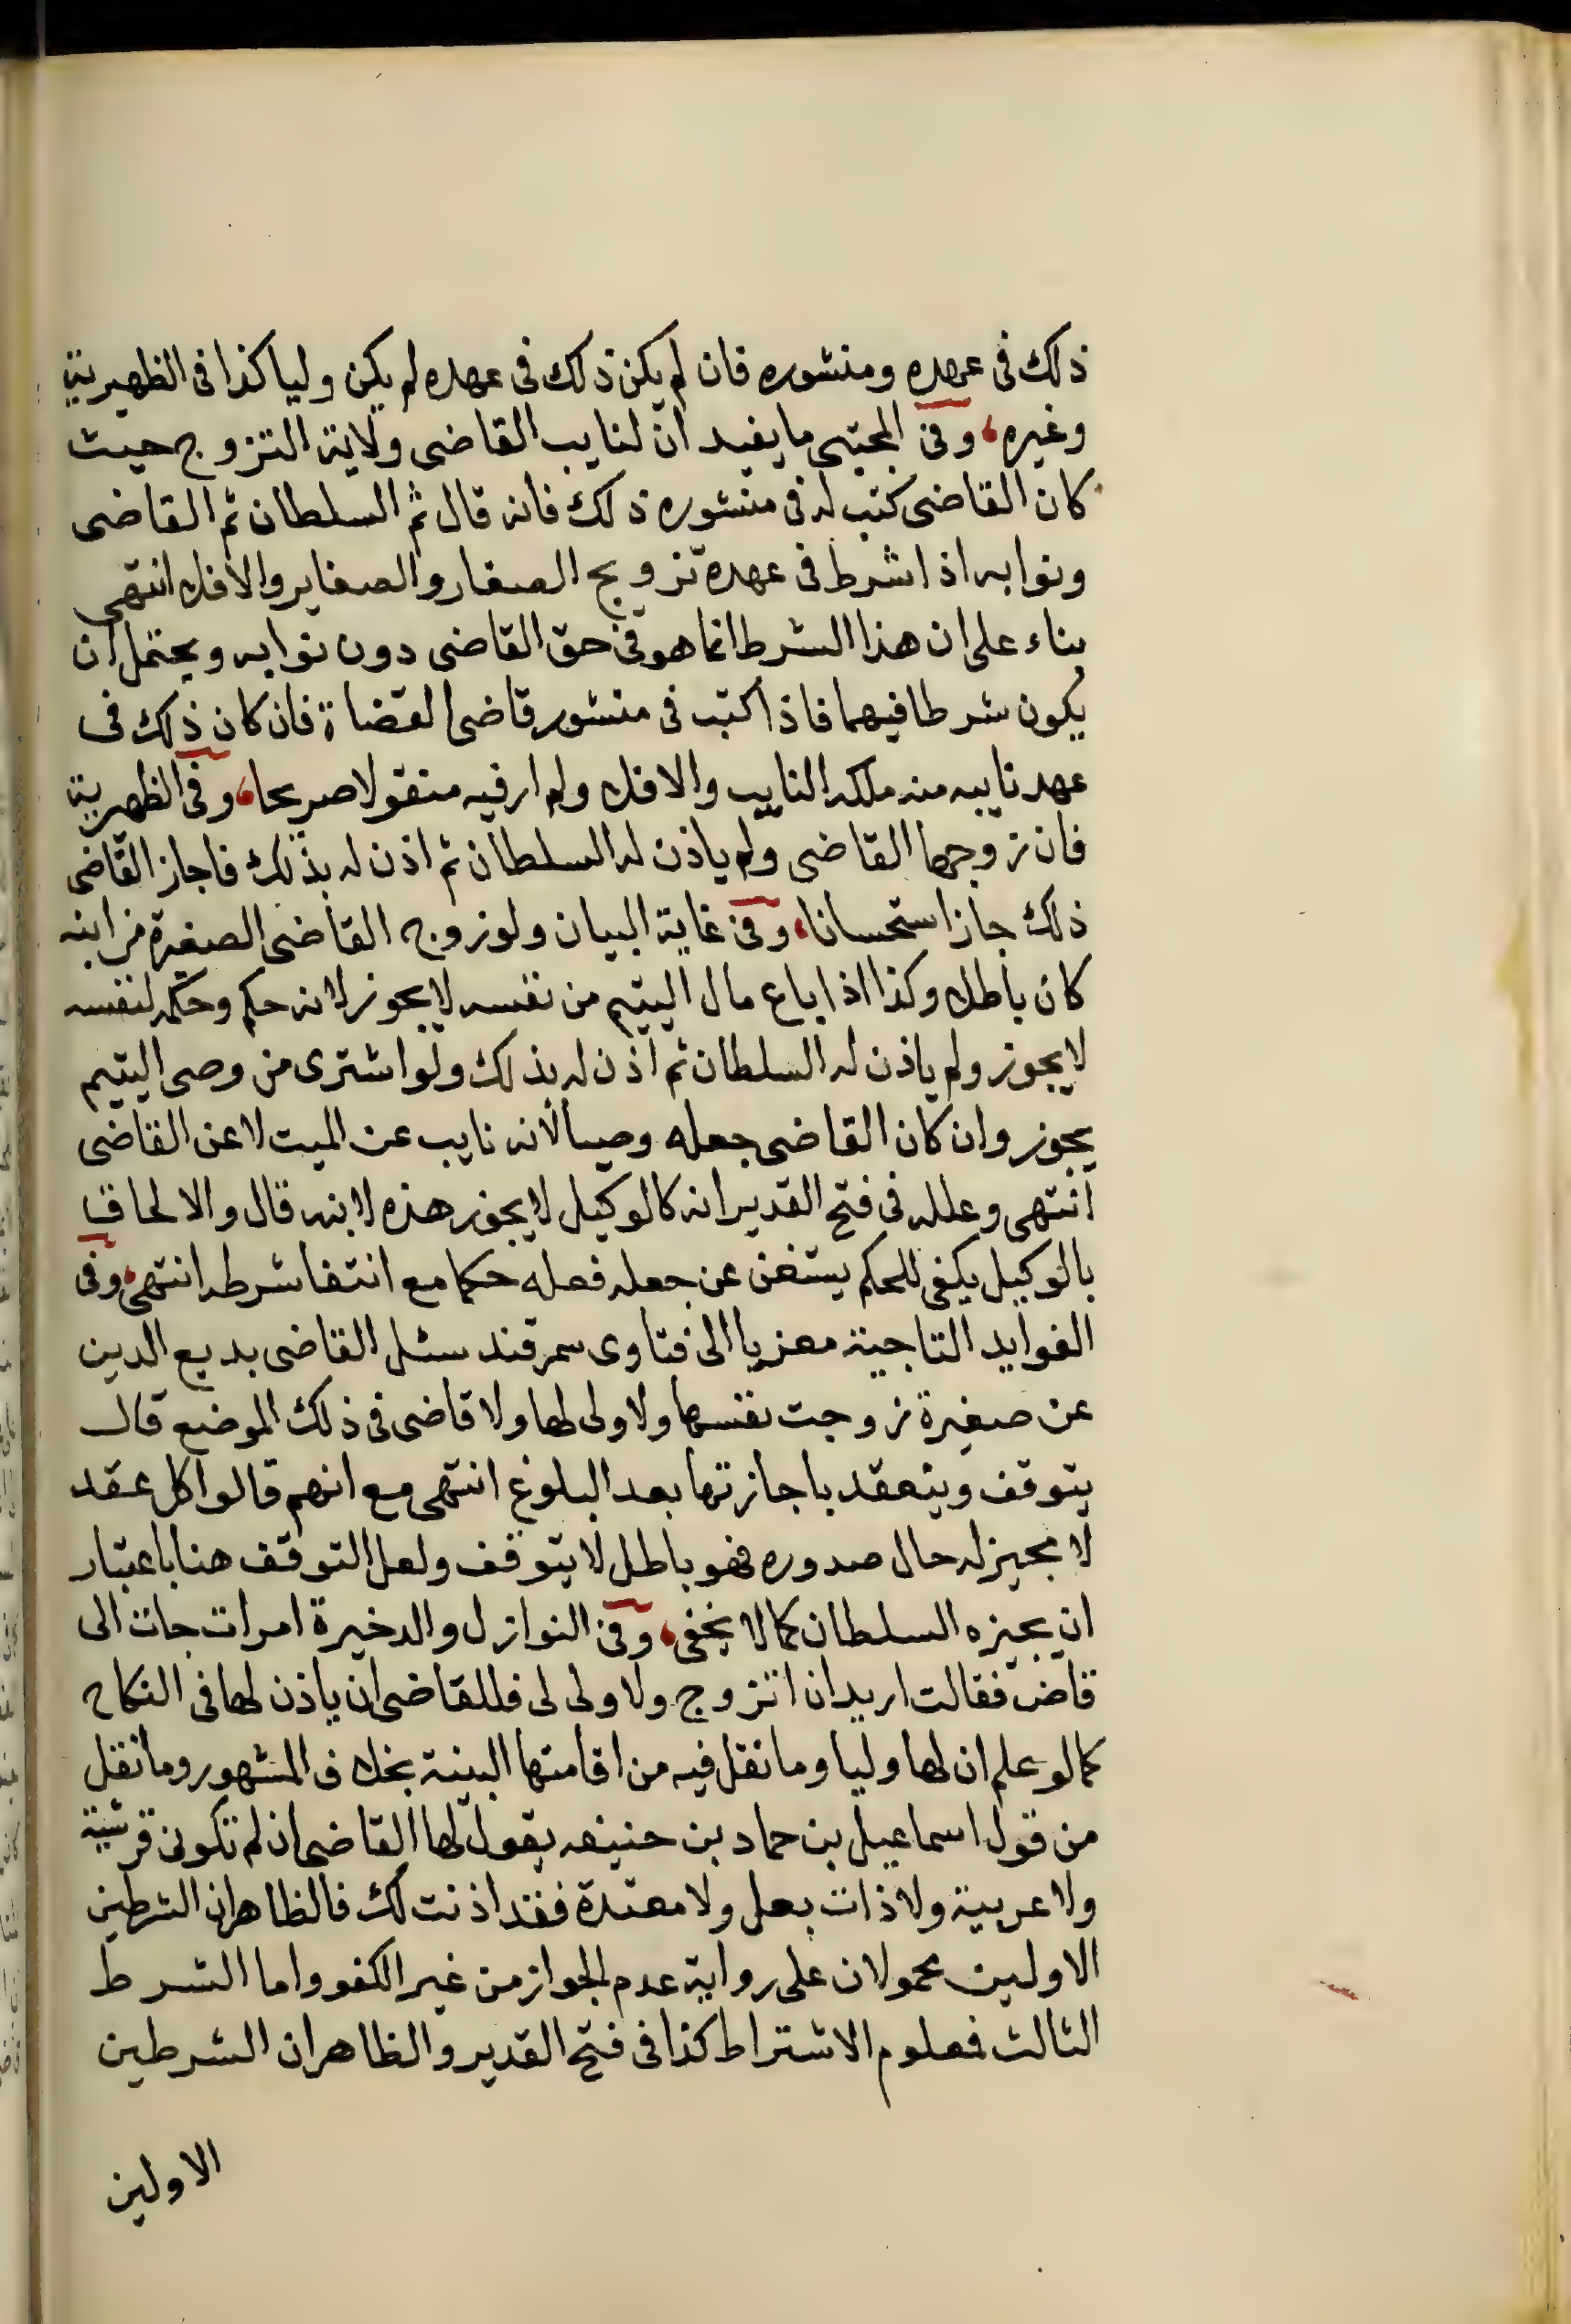 ذلك فى عهده ومنشوره فان لم يكن ذلك فى عهده لم يكن وليا كذا فى الظهيرية
وغيره، وفى المجتبى ما يفيد ان لنايب القاضى ولاية التزوج حيث
كان القاضى كتب له فى منشوره ذلك فانه قال ثم السلطان ثم القاضى
ونوابه اذا شرط فى عهده تزويج الصغار والصغاير والا فلا انتهى
بناء على ان هذا الشرط انما هو فى حق القاضى دون نوابه ويحتمل ان
يكون شرطا فيهما فاذا كتب فى منشور قاضى القضاة فان كان ذلك فى
عهد نايبه منه ملكه النايب والا فلا ولم ار فيه منقولا صريحا، وفى الظهيرية
فان زوجها القاضى ولم ياذن له السلطان ثم اذن له بذلك فاجاز القاضى
ذلك جاز استحسانا، وفى غاية البيان ولو زوج القاضى الصغيرة من ابنه
كان باطلا وكذا اذا باع مال اليتيم من نفسه لا يجوز لانه حكم وحكمه لنفسه
لا يجوز ولم ياذن له السلطان ثم اذن له بذلك ولو اشترى من وصى اليتيم
يجوز وان كان القاضى جعله وصيا لانه نايب عن الميت لا عن القاضى
انتهى وعلله فى فتح القدير انه كالوكيل لا يجوز هذه لابنه قال والالحاق
بالوكيل يكفى للحكم يستغن عن جعله فعله حكما مع انتفا شرطه انتهى، وفى
الفوايد التاجية معزيا الى فتاوى سمرقند سئل القاضى بديع الدين
عن صغيرة زوجت نفسها ولا ولى لها ولا قاضى فى ذلك الموضع قال
يتوقف وينعقد باجازتها بعد البلوغ انتهى مع انهم قالوا كل عقد
لا مجيز له حال صدوره فهو باطل لا يتوقف ولعل التوقف هنا باعتبار
ان يجيزه السلطان كما لا يخفى، وفى النوازل والدخيرة امرات جات الى
قاض فقالت اريد ان اتزوج ولا ولى لى فللقاضى ان ياذن لها فى النكاح
كما لو علم ان لها وليا وما نقل فيه من اقامتها البينة بخلاف المشهور وما نقل
من قول اسماعيل بن حماد بن حنيفه يقول لها القاضى ان لم تكونى قرشية
ولا عربية ولا ذات بعل ولا معتدة فقد اذنت لك فالظاهر ان الشرطين
الاولين محمولان على رواية عدم الجواز من غير الكفو واما الشرط
الثالث فمعلوم الاشتراط كذا فى فتح القدير والظاهر ان الشرطين
الاولين